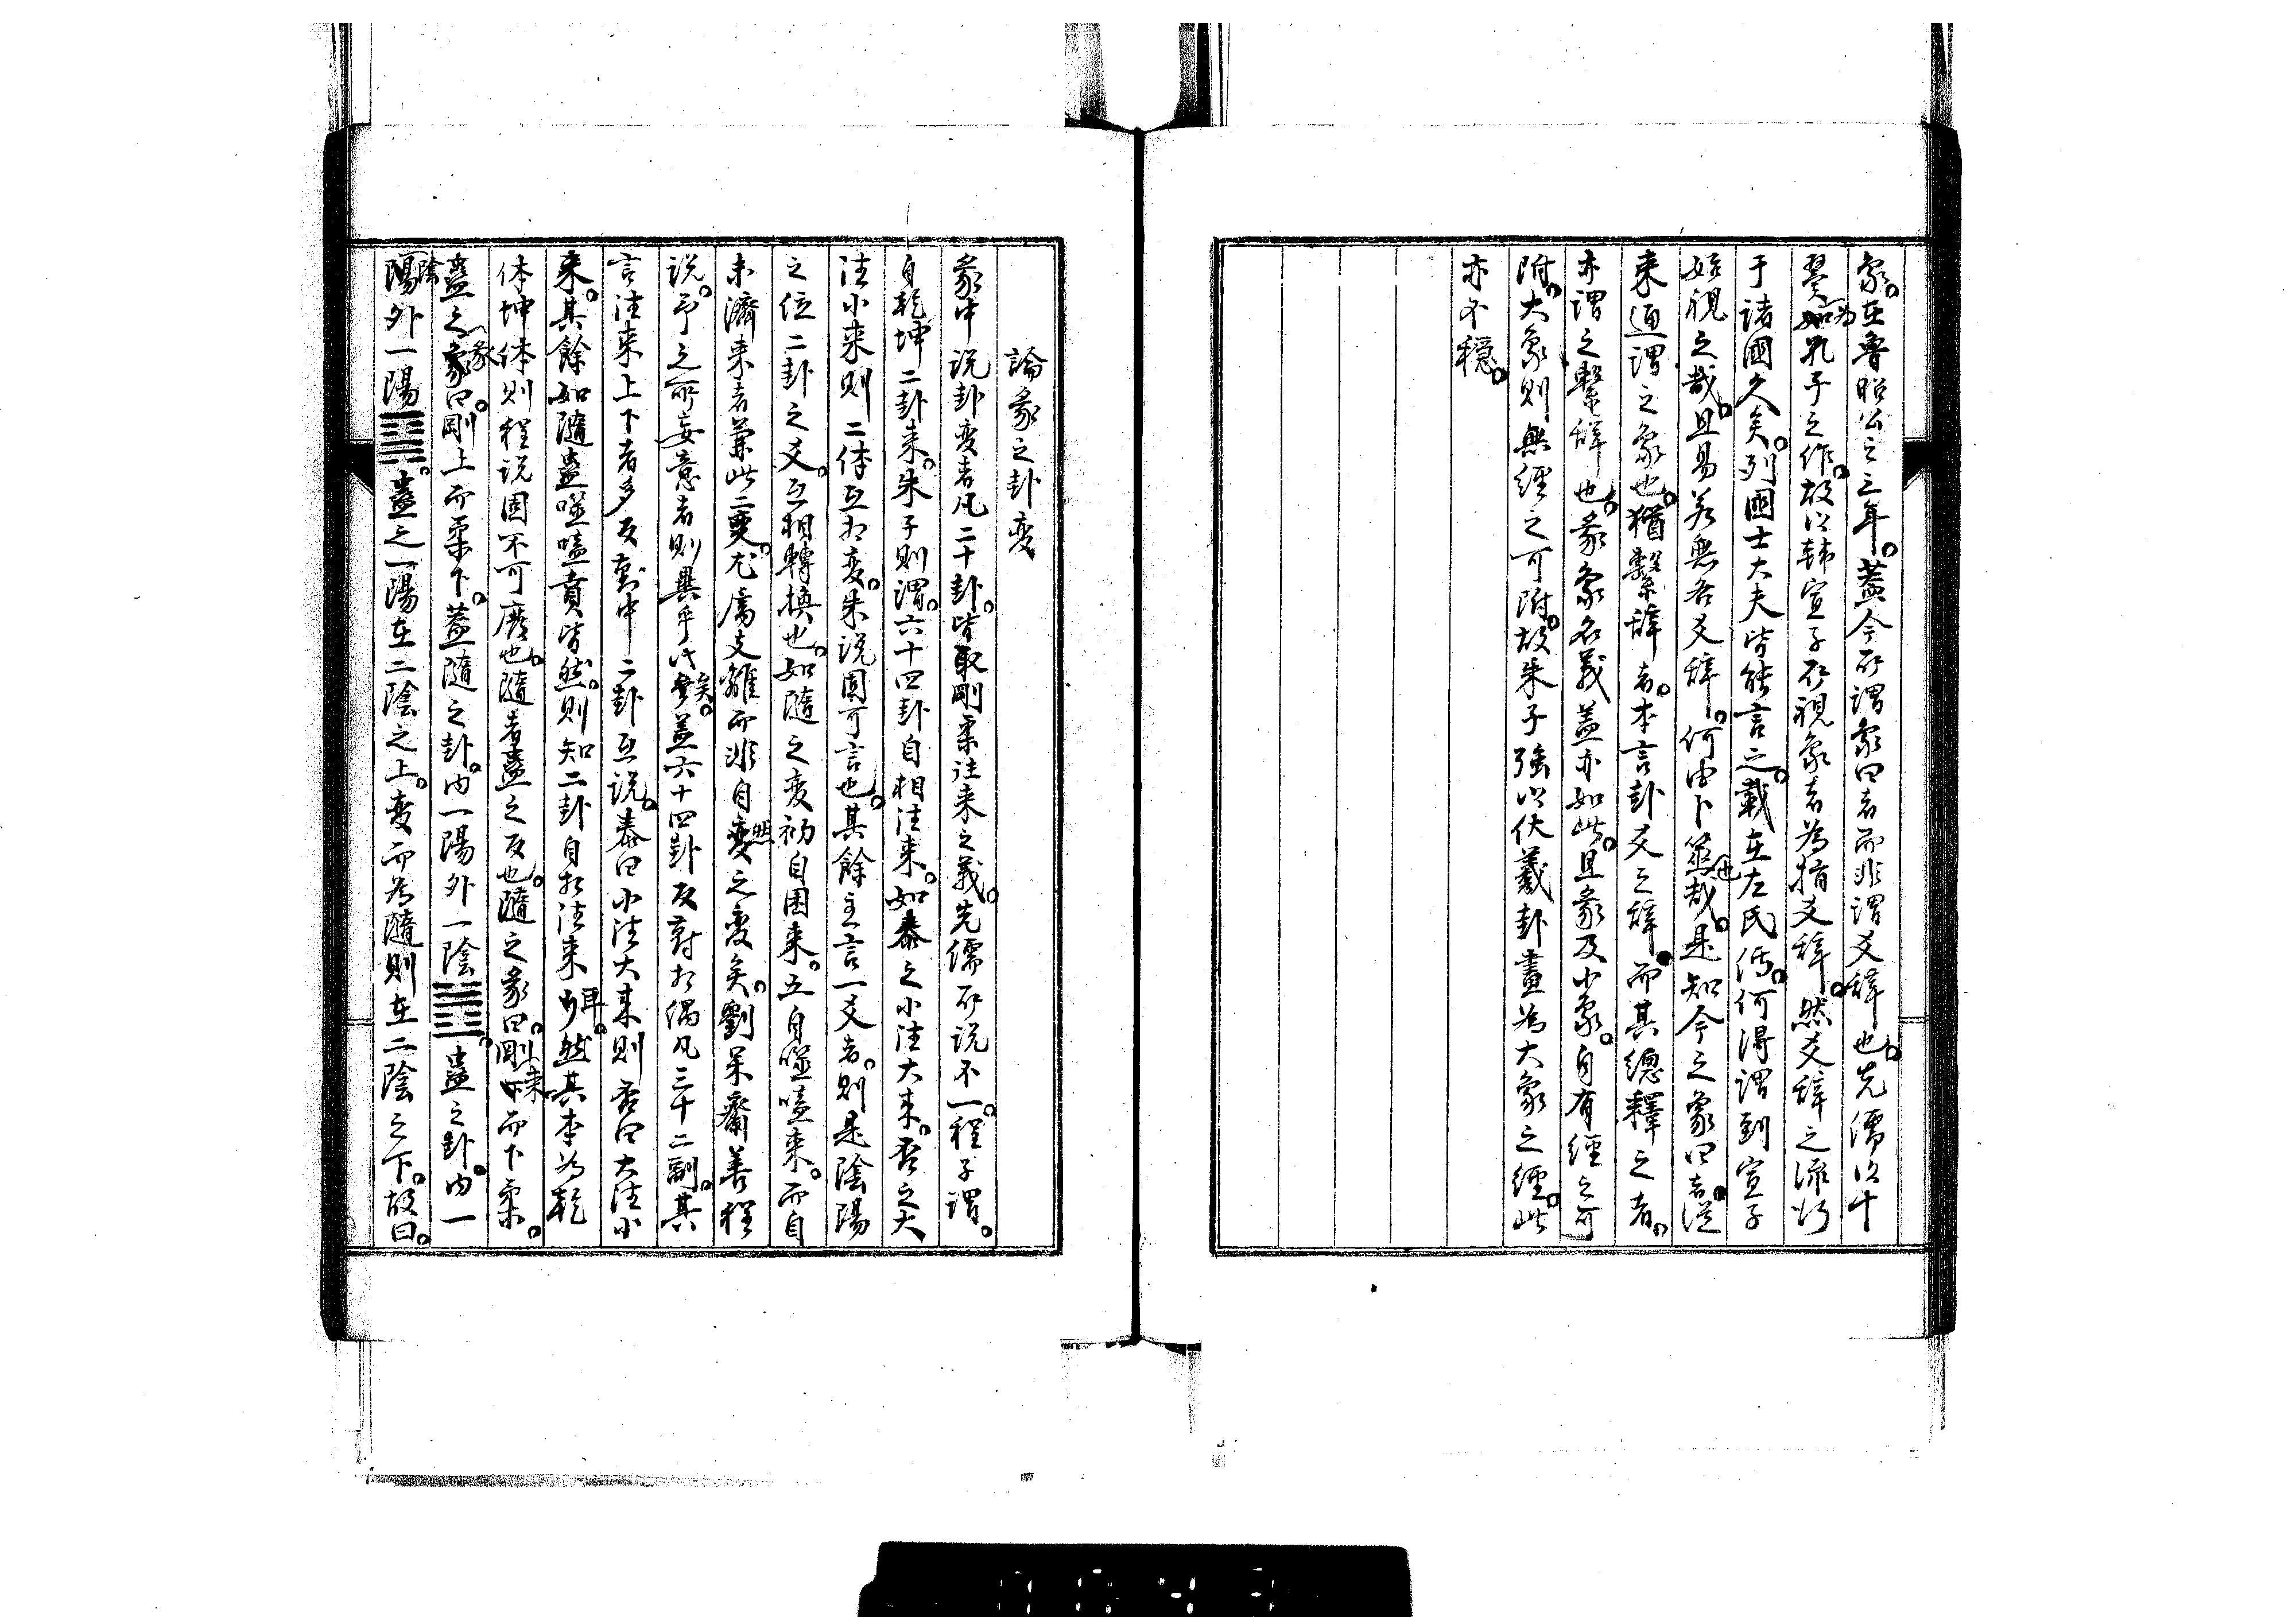 象。在魯昭公之二年。蓋今所謂象曰者而非謂爻辞也。先儒以十
翼為孔子之作。故以韩宣子所視象者為指爻辞。然爻辞之流行
于諸國久矣。列國士大夫皆能言之。載在左氏傳。何得謂到宣子
始視之哉。且易若無各爻辞。何由卜筮也哉。是知今之象曰者。從
来通謂之象也。猶繫辞者。本言卦爻之辞。而其總釋之者。
亦謂之繫辞也。彖象名義蓋亦如此。且彖及小象。自有經之可
附。大象則無經之可附。故朱子強以伏羲卦畫為大象之經。此
亦不穏。
論彖之卦変
彖中説卦変者凡二十卦。皆取剛柔往来之義。先儒所説不一。程子謂。
自乾坤二卦来。朱子則謂。六十四卦自相往来。如泰之小往大来。否之大
往小来則二体互相変。朱説固可言也。其餘主言一爻者。則是陰陽
之位二卦之爻。互相轉換也。如隨之変初自困来。五自噬嗑来。而自
未濟来者兼此二変。尤属支離而非自然之変矣。劉呆齋善程
説。予之所妄意者則異乎此矣。蓋六十四卦反對相偶凡三十二副。其
言往来上下者多反對中二卦互説。泰曰小往大来則否曰大往小
来。其餘如隨蠱噬嗑賁皆然。則知二卦自相往来耳。然其本為乾
体坤体則程説固不可廢也。隨者蠱之反也。隨之彖曰。剛来而下柔。
蠱之彖曰。剛上而柔下。蓋隨之卦。内一陽外一陰䷐。蠱之卦。内一
陰外一陽䷑。蠱之一陽在二陰之上。変而為隨則在二陰之下。故曰。